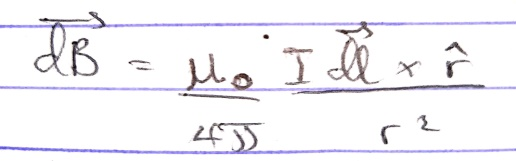 $\vec{dB} = \frac{\mu_0}{4\pi} \frac{I \vec{dl} \times \hat{r}}{r^2}$